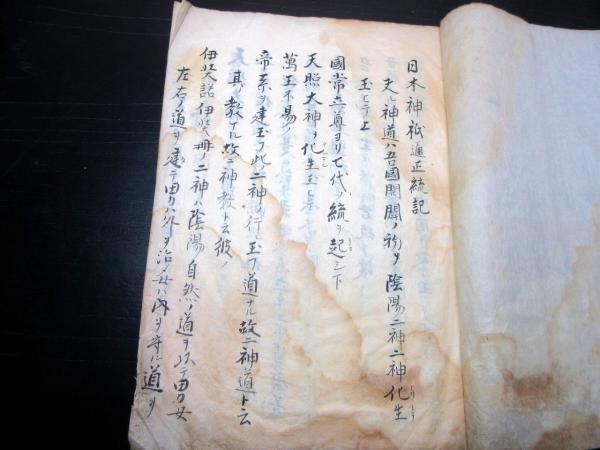 日本神祇道正統記
夫レ神道ハ吾國開闢ノ初ヨリ陰陽二神二神化生
玉ヒテ上
國常立尊ヨリ七代ノ統ヲ起シ下
天照大神ヲ化生玉ヒ
萬王不易ノ
帝系ヲ建玉フ此二神ノ行玉フ道ナル故ニ神道ト云
其教ナル故ニ神教ト云彼ノ
伊弉諾伊弉冊ノ二神ハ陰陽自然ノ道ヲ以テ男女
左右ノ道ヲ建テ男ハ外ヲ治メ女ハ内ヲ守ル道ヲ